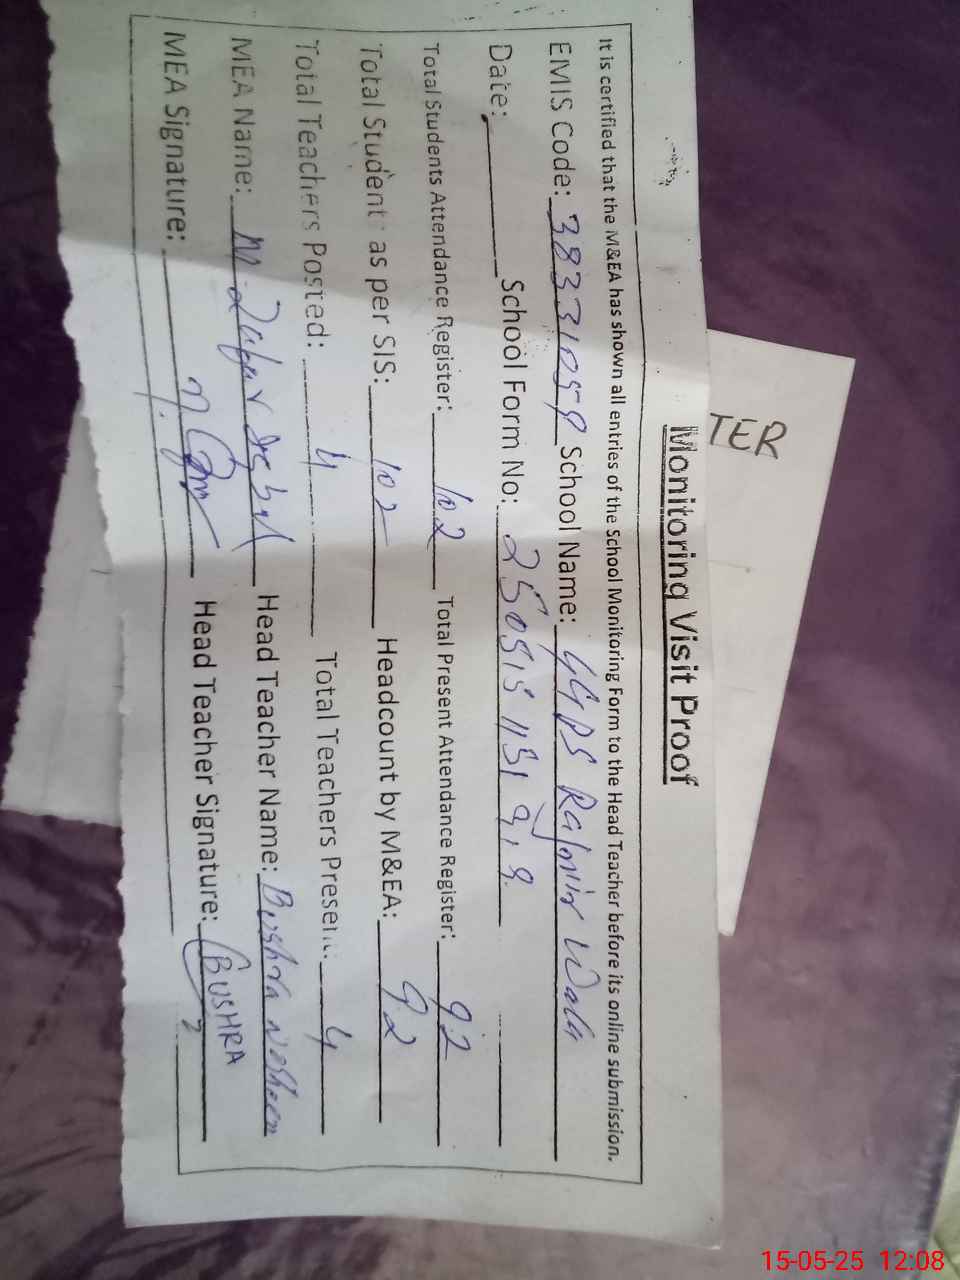 TER
Monitoring Visit Proof
It is certified that the M&EA has shown all entries of the School Monitoring Form to the Head Teacher before its online submission.
EMIS Code: 38331059 School Name: GGPS Rahnir Wala
Date: School Form No:
Total Students Attendance Register: 102 Total Present Attendance Register: 92
Total Student as per SIS: 102 Headcount by M&EA: 92
Total Teachers Posted: 4 Total Teachers Present: 4
MEA Name: M. Zafar Iqbal Head Teacher Name: Bushra Nosheen
MEA Signature: Head Teacher Signature: BUSHRA
15-05-25 12:08